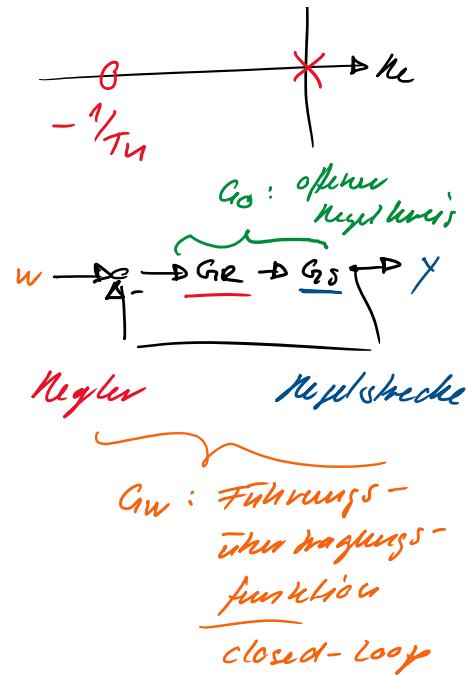 Re
- 1/Tn
G0 : offener
Regelkreis
w GR GS y
-
Regler Regelstrecke
Gw : Führungs-
übertragungs-
funktion
closed-loop